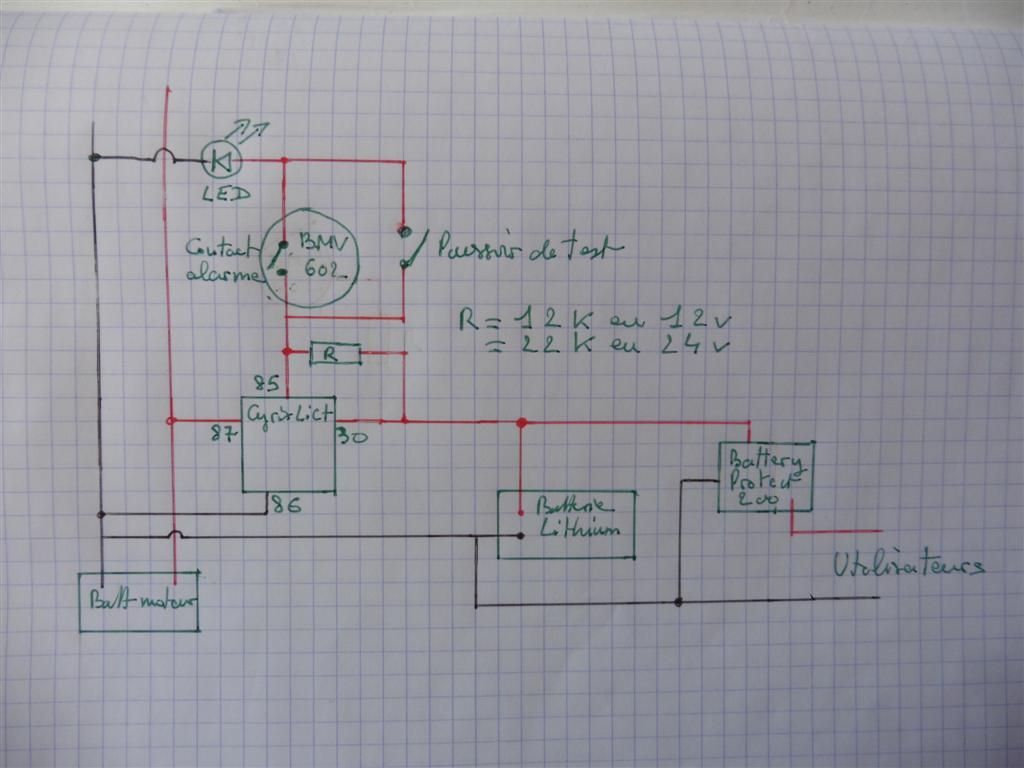 LED
Contact
alarme
BMV
602
Poussoir de test
R = 12K en 12v
= 22K en 24v
R
85
Cyrix Lict
87
30
86
Battery
Protect
200
Batterie
Lithium
Utilisateurs
Batt moteur